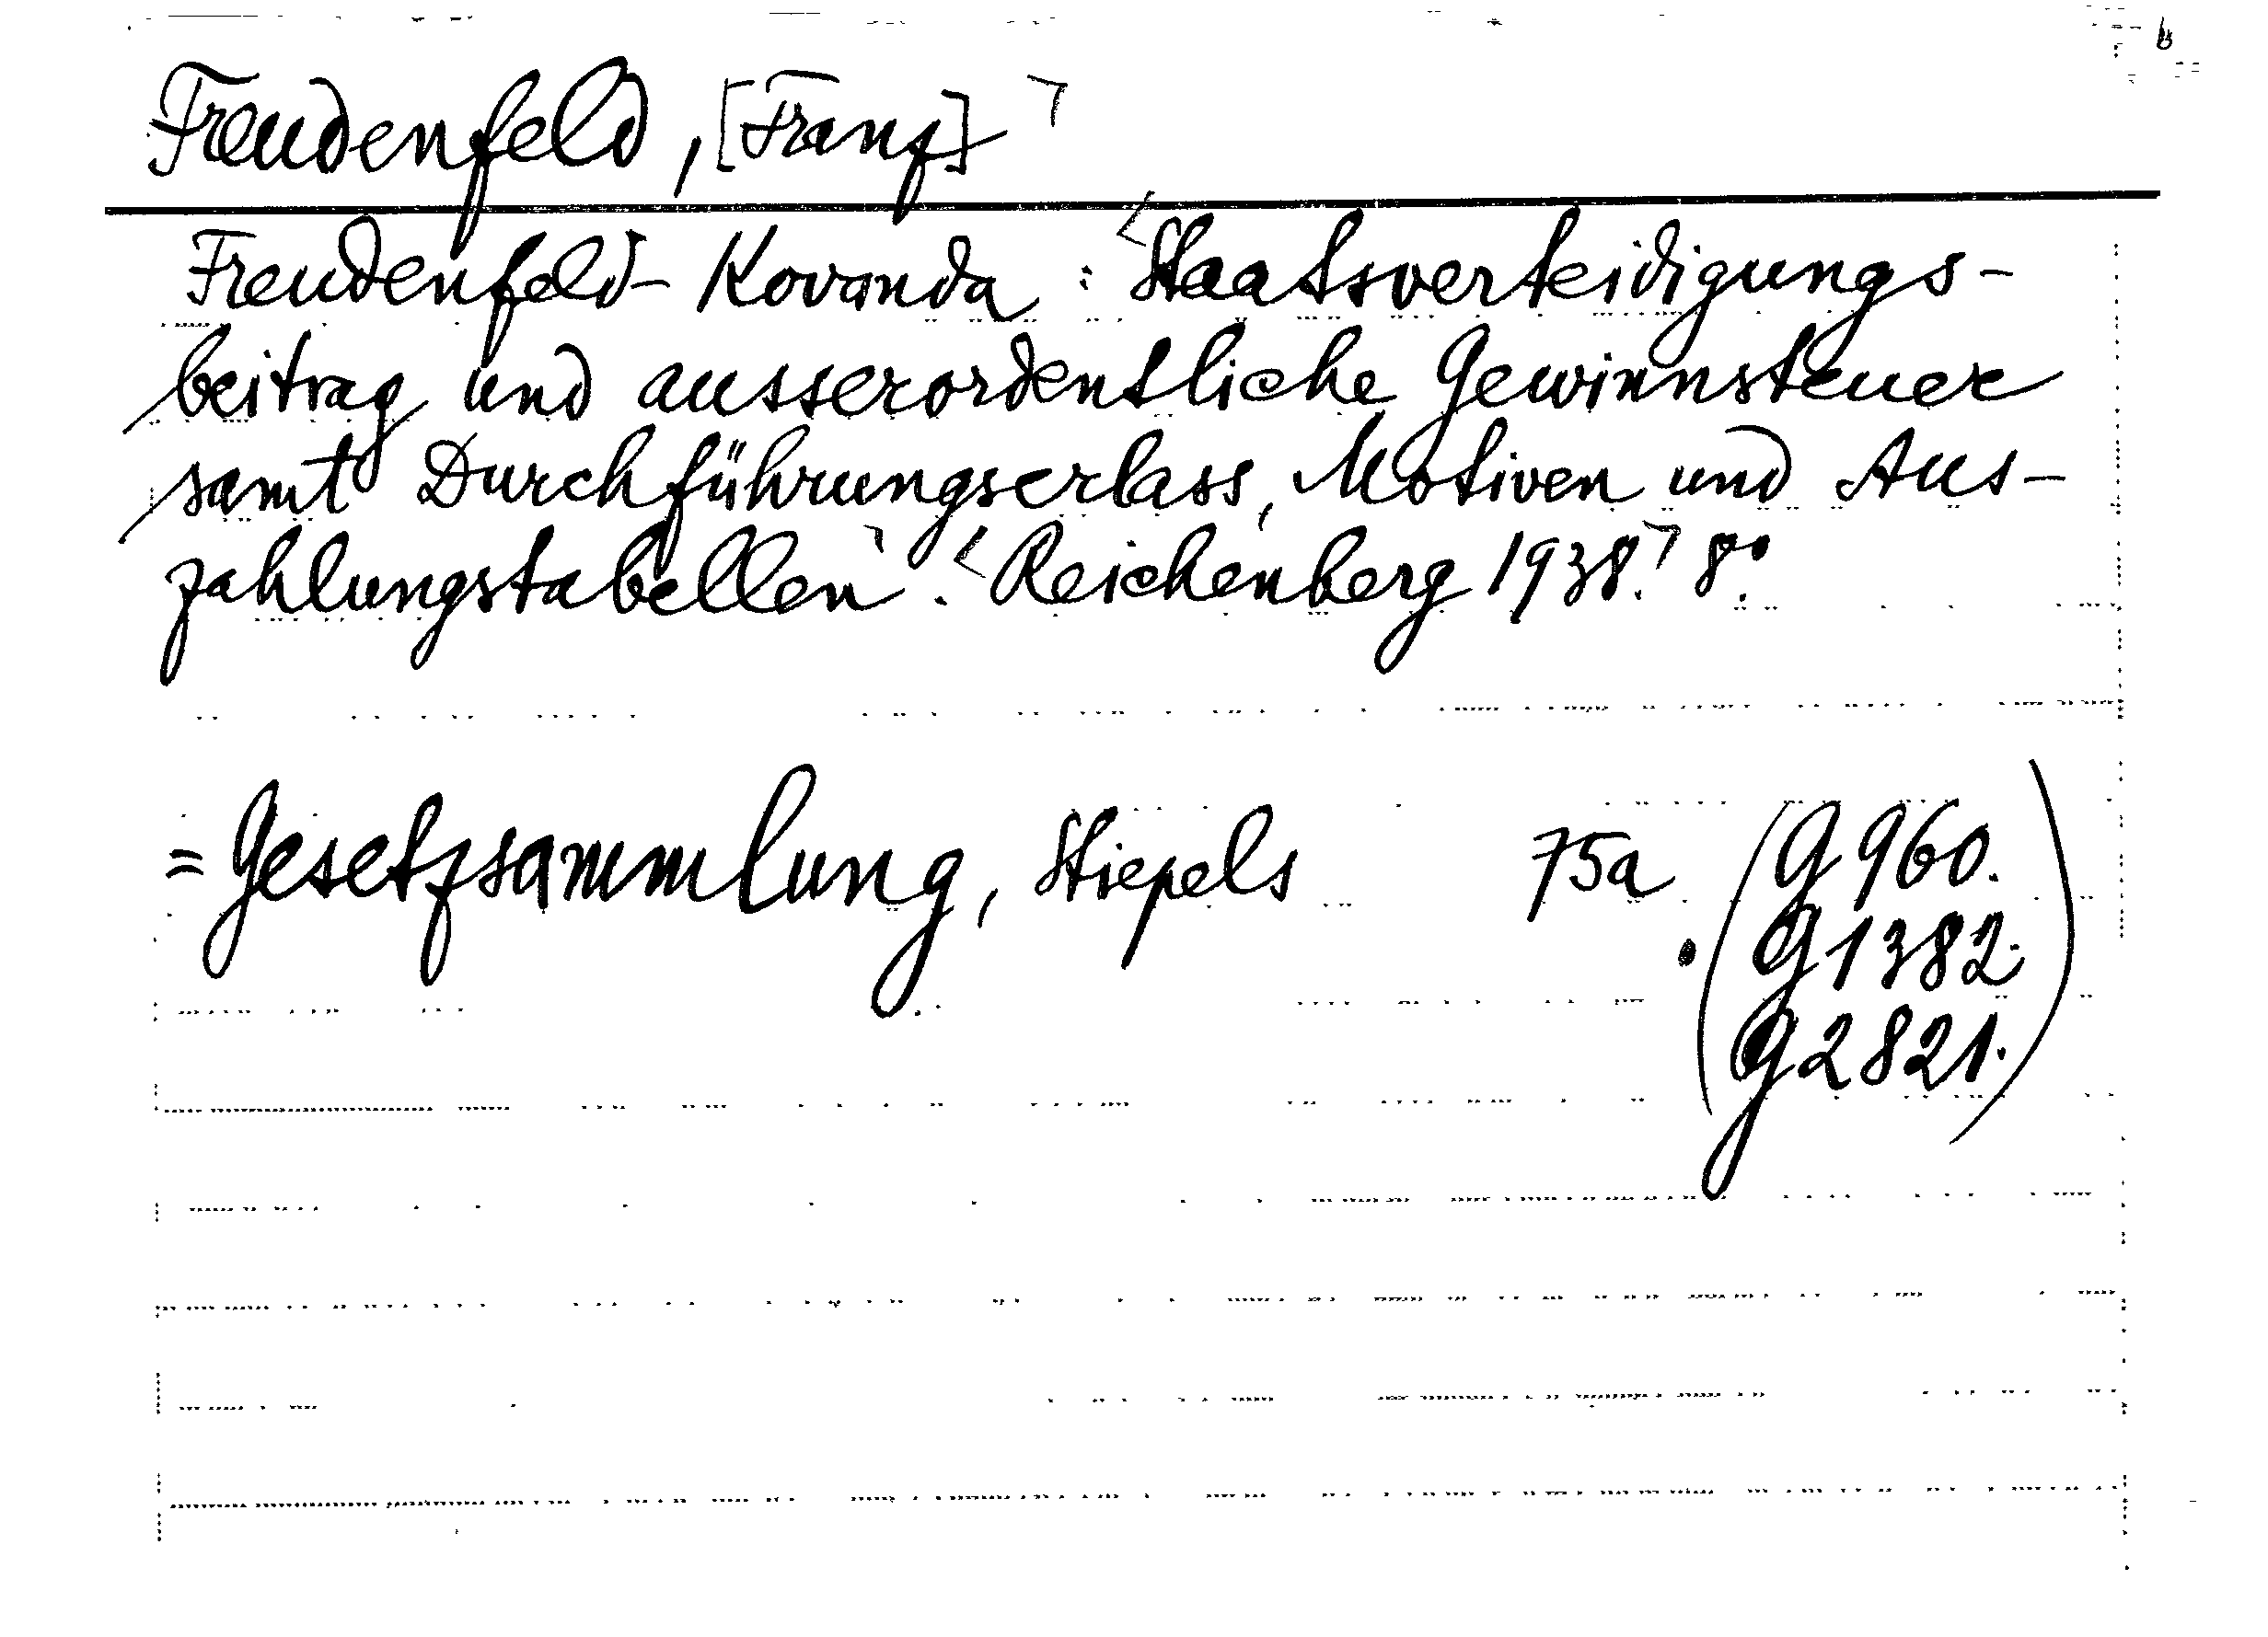 Freudenfeld, [Franz]
Freudenfeld-Kovanda: Staatsverteidigungs-
beitrag und ausserordentliche Gewinnsteuer
samt Durchführungserlass, Motiven und Aus-
zahlungstabellen. Reichenberg 1938. 8°.
= Gesetzsammlung, Stiepels 75a (G 960.
G 1382.
G 2821.)